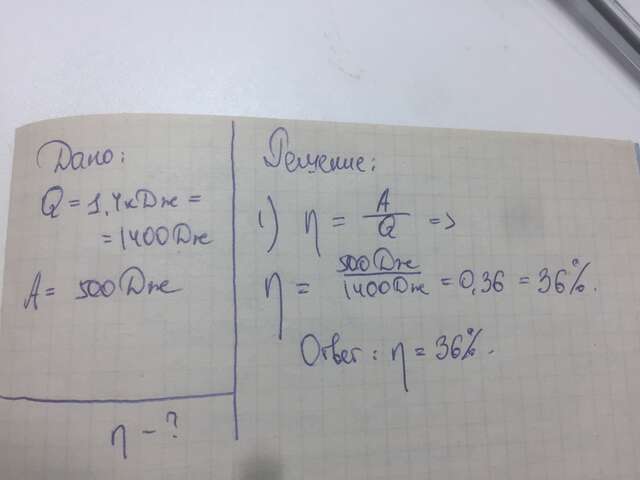 Дано:
Q = 1,4кДж =
= 1400Дж
A = 500Дж
η - ?
Решение:
1) η = A/Q =>
η = 500Дж/1400Дж = 0,36 = 36%.
Ответ: η = 36%.